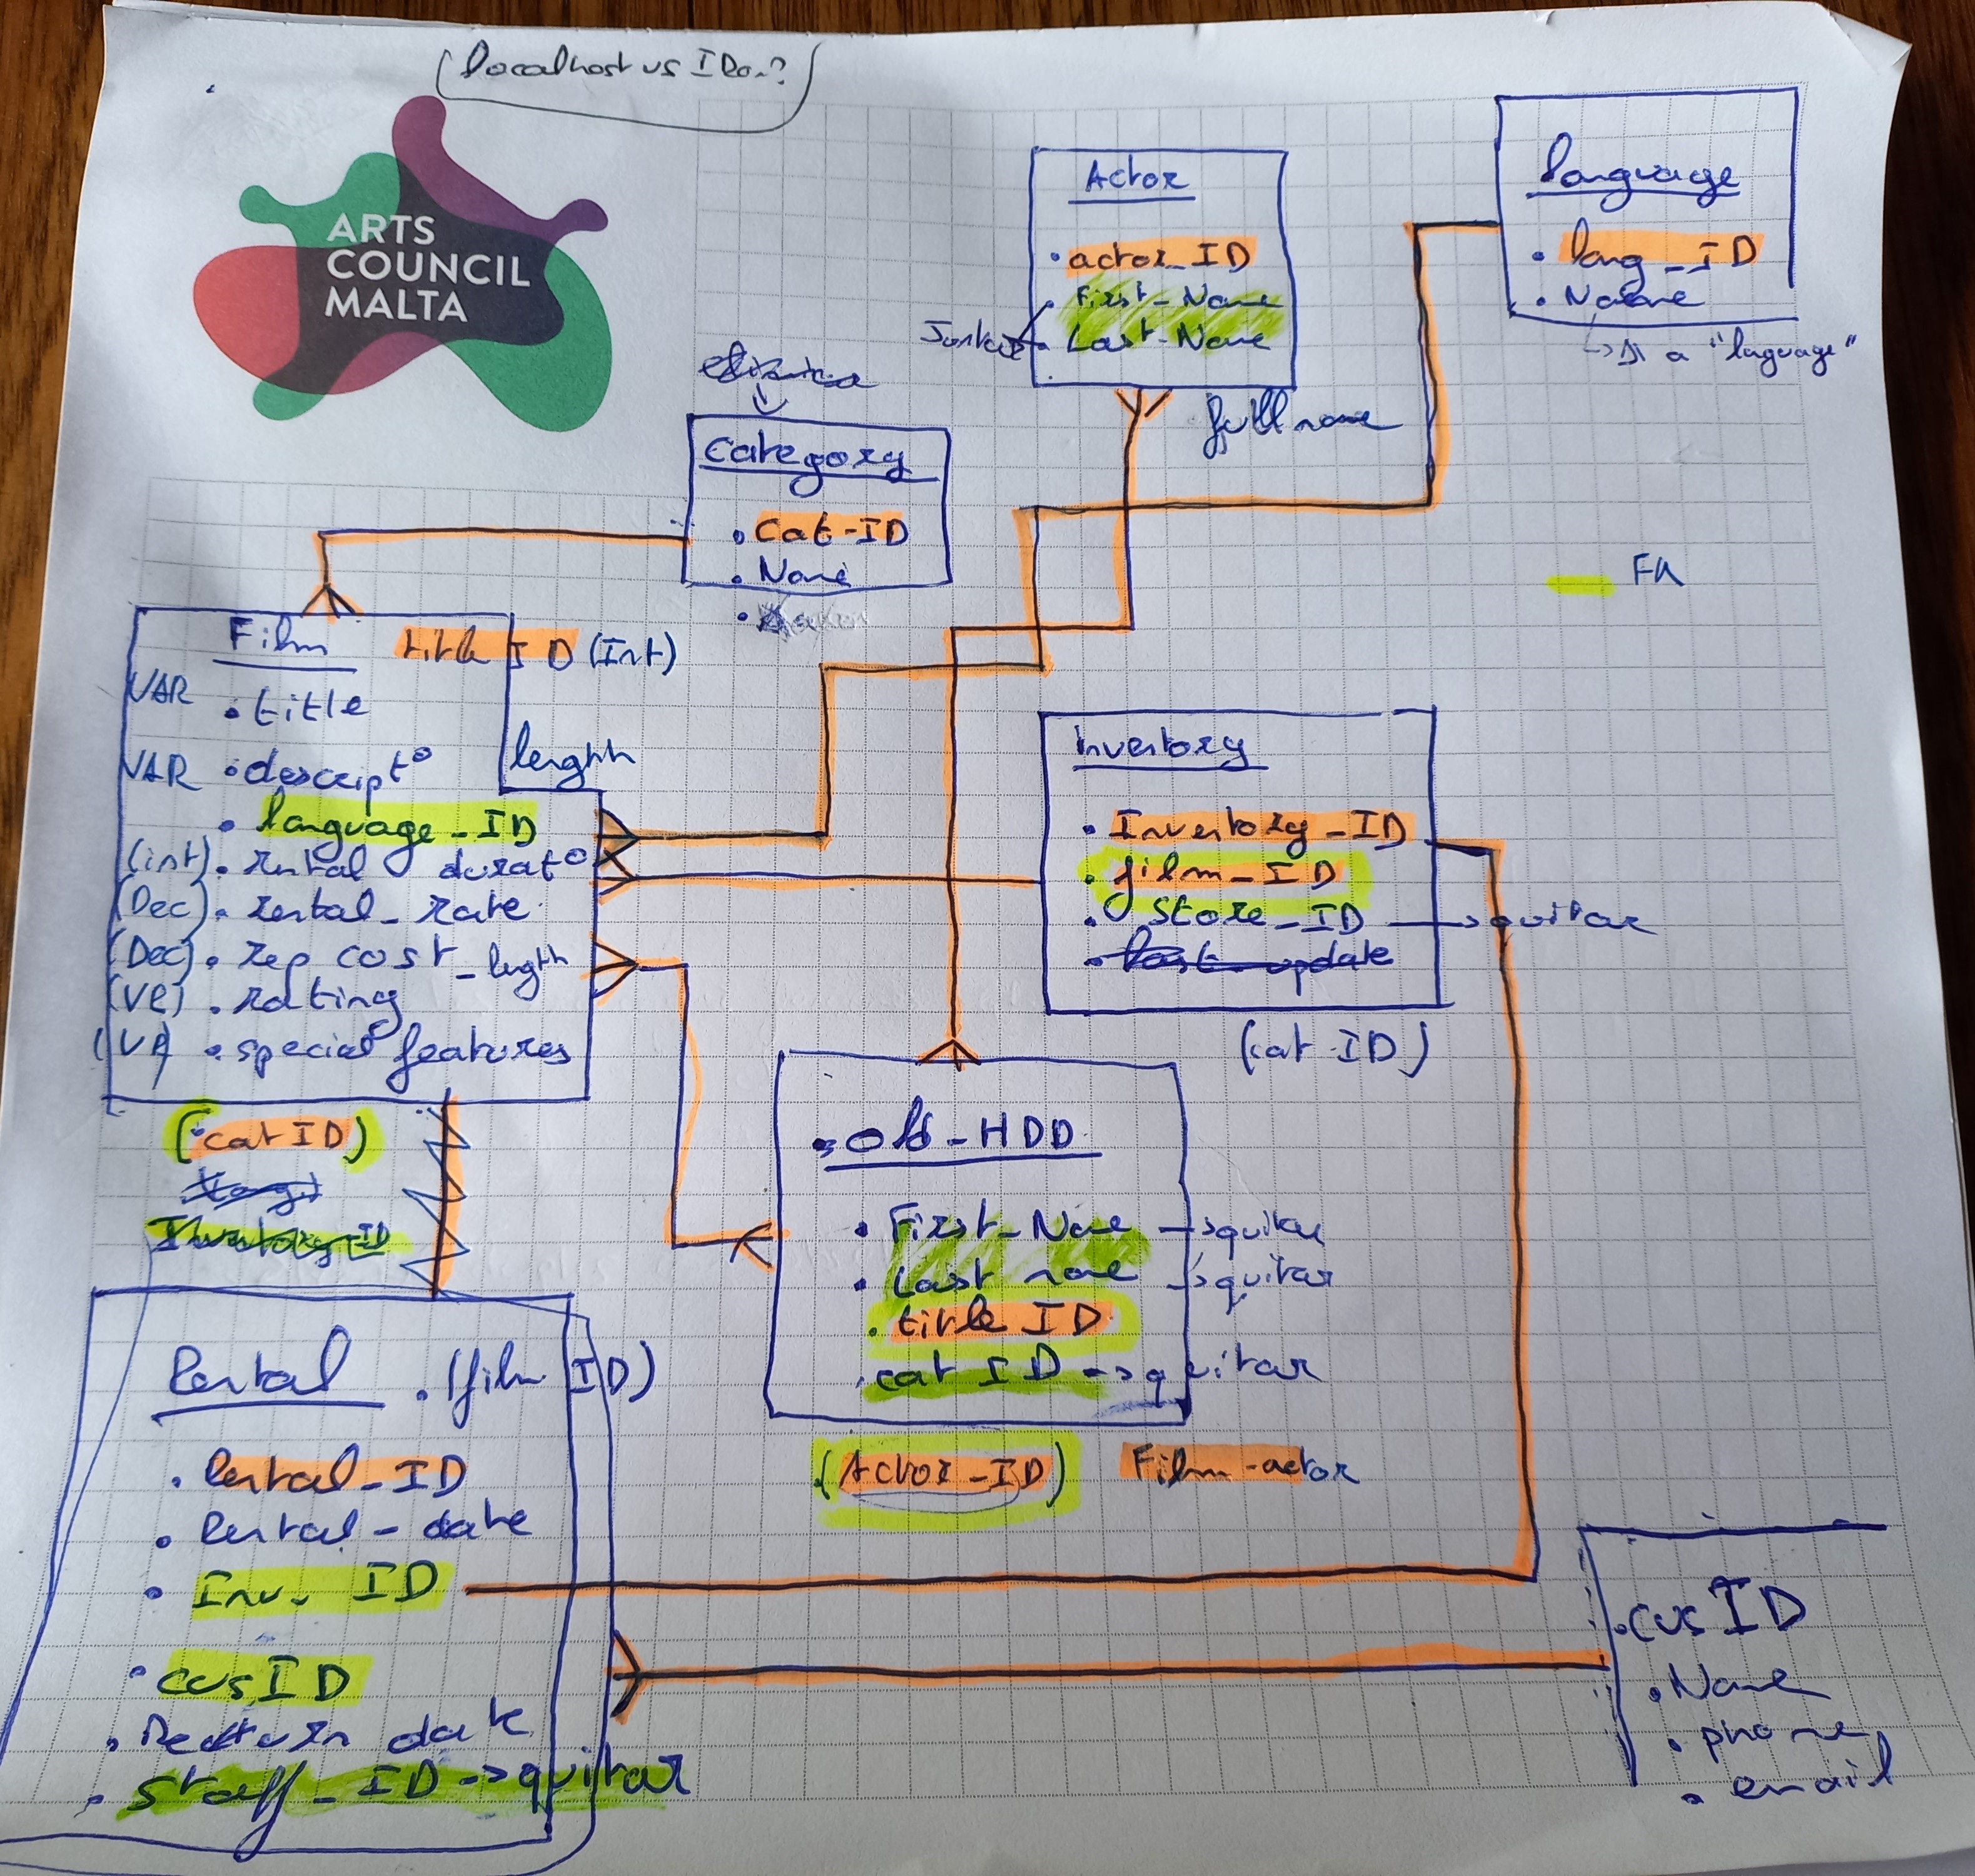 localhost vs
ARTS
COUNCIL
MALTA
Actor
• actor_ID
• First_Name
Last_Name
full name
language
• lang_ID
• Name
a "language"
Category
• Cat-ID
• Name
FK
Film
title ID (Int)
VAR • title
VAR • descript°
lenghh
• language_ID
(int) • rental durat°
(Dec) • rental_rate
(Dec) • rep cost _ lenghh
(VR) • rating
(VR) • special features
(• cat ID)
Inventory_ID
Inventory
• Inventory_ID
• film_ID
• Store_ID → quitar
• last_update
(cat ID)
• old-HDD
• First_Name → quitar
• Last name → quitar
• title ID
• cat ID → quitar
(Actor_ID)
Film-actor
Rental • (film ID)
• Rental_ID
• Rental-date
• Inv. ID
• cusID
• Return date
• Staff_ID → quitar
• cusID
• Name
• phone
• email